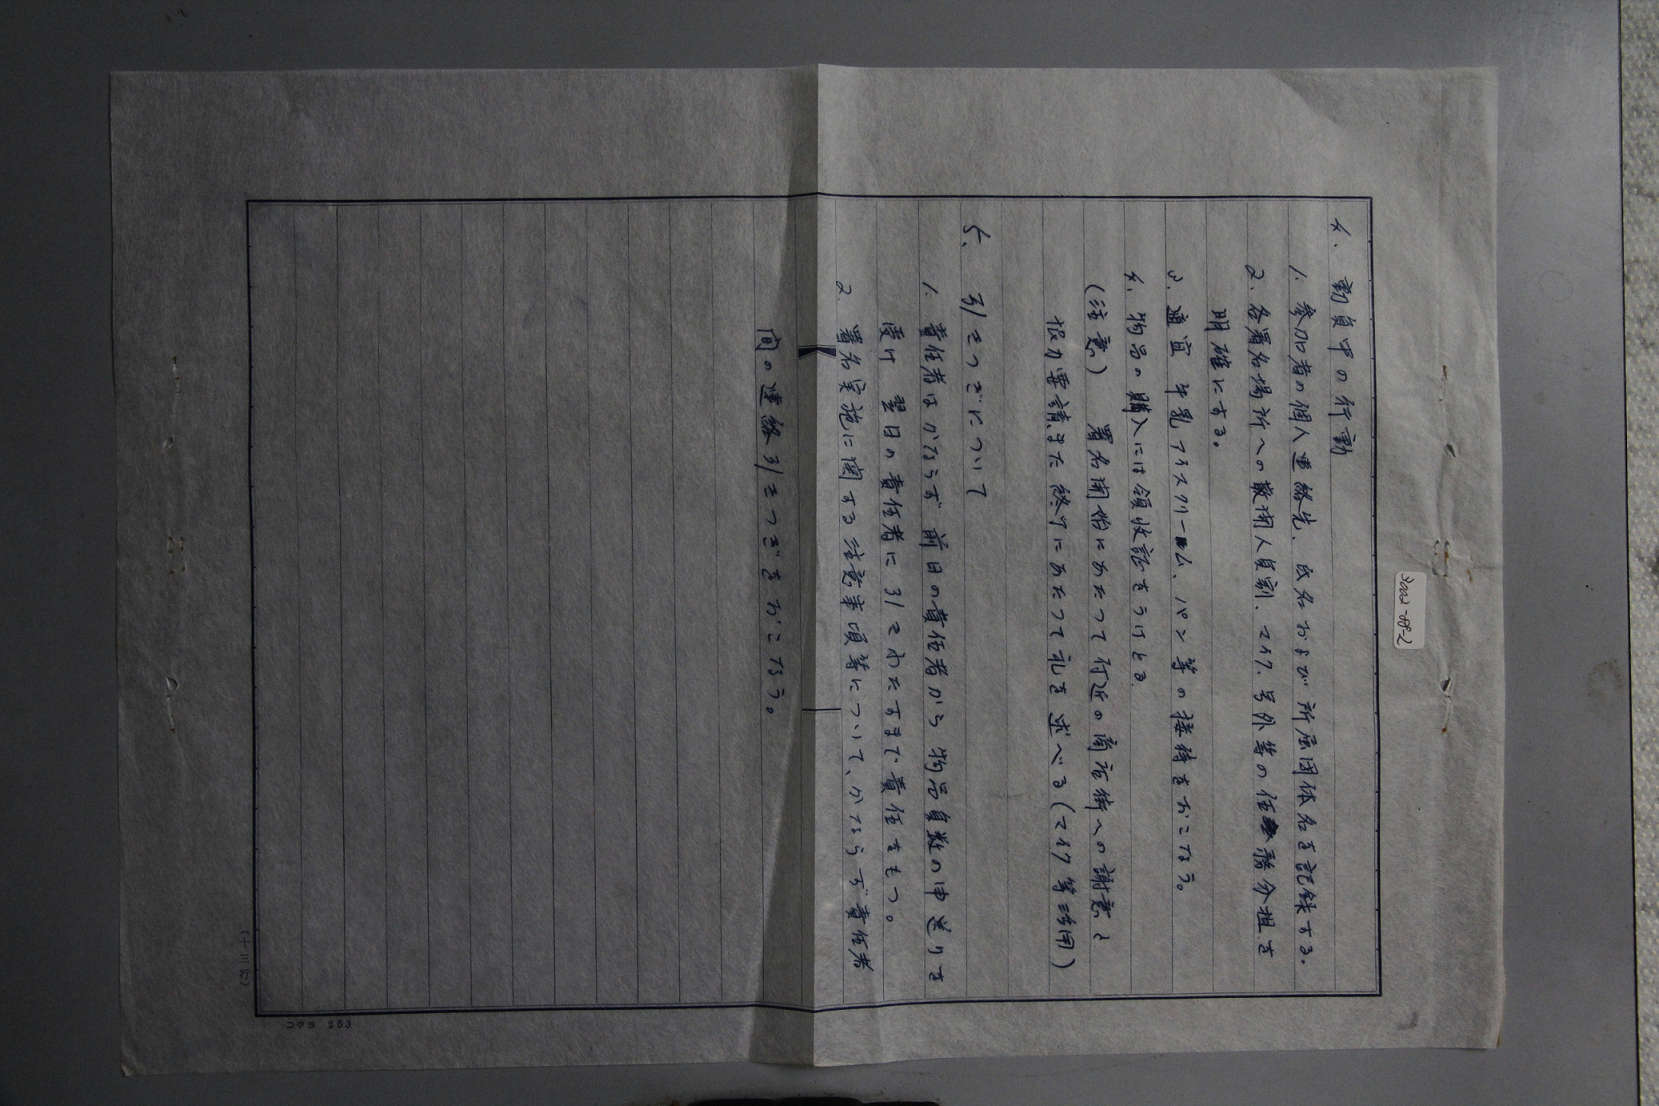 4. 動員中の行動
1. 参加者の個人連絡先、氏名および所属団体名を記録する。
2. 各署名場所への 人員割、マイク、号外等の任務分担を
明確にする。
3. 適宜 牛乳アイスクリーム、パン等の接待をおこなう。
4. 物品の購入には領収証をうけとる
(注意) 署名開始にあたって付近の商店街への謝意と
協力要請また終了にあたって礼を述べる(マイク等活用)
5. 引きつぎについて
1. 責任者はかならず前日の責任者から物品員数の申送りを
受け 翌日の責任者に引きわたすまで責任をもつ。
2. 署名実施に関する注意事項等について、かならず責任者
間の連絡引きつぎをおこなう。
コクヨ 253